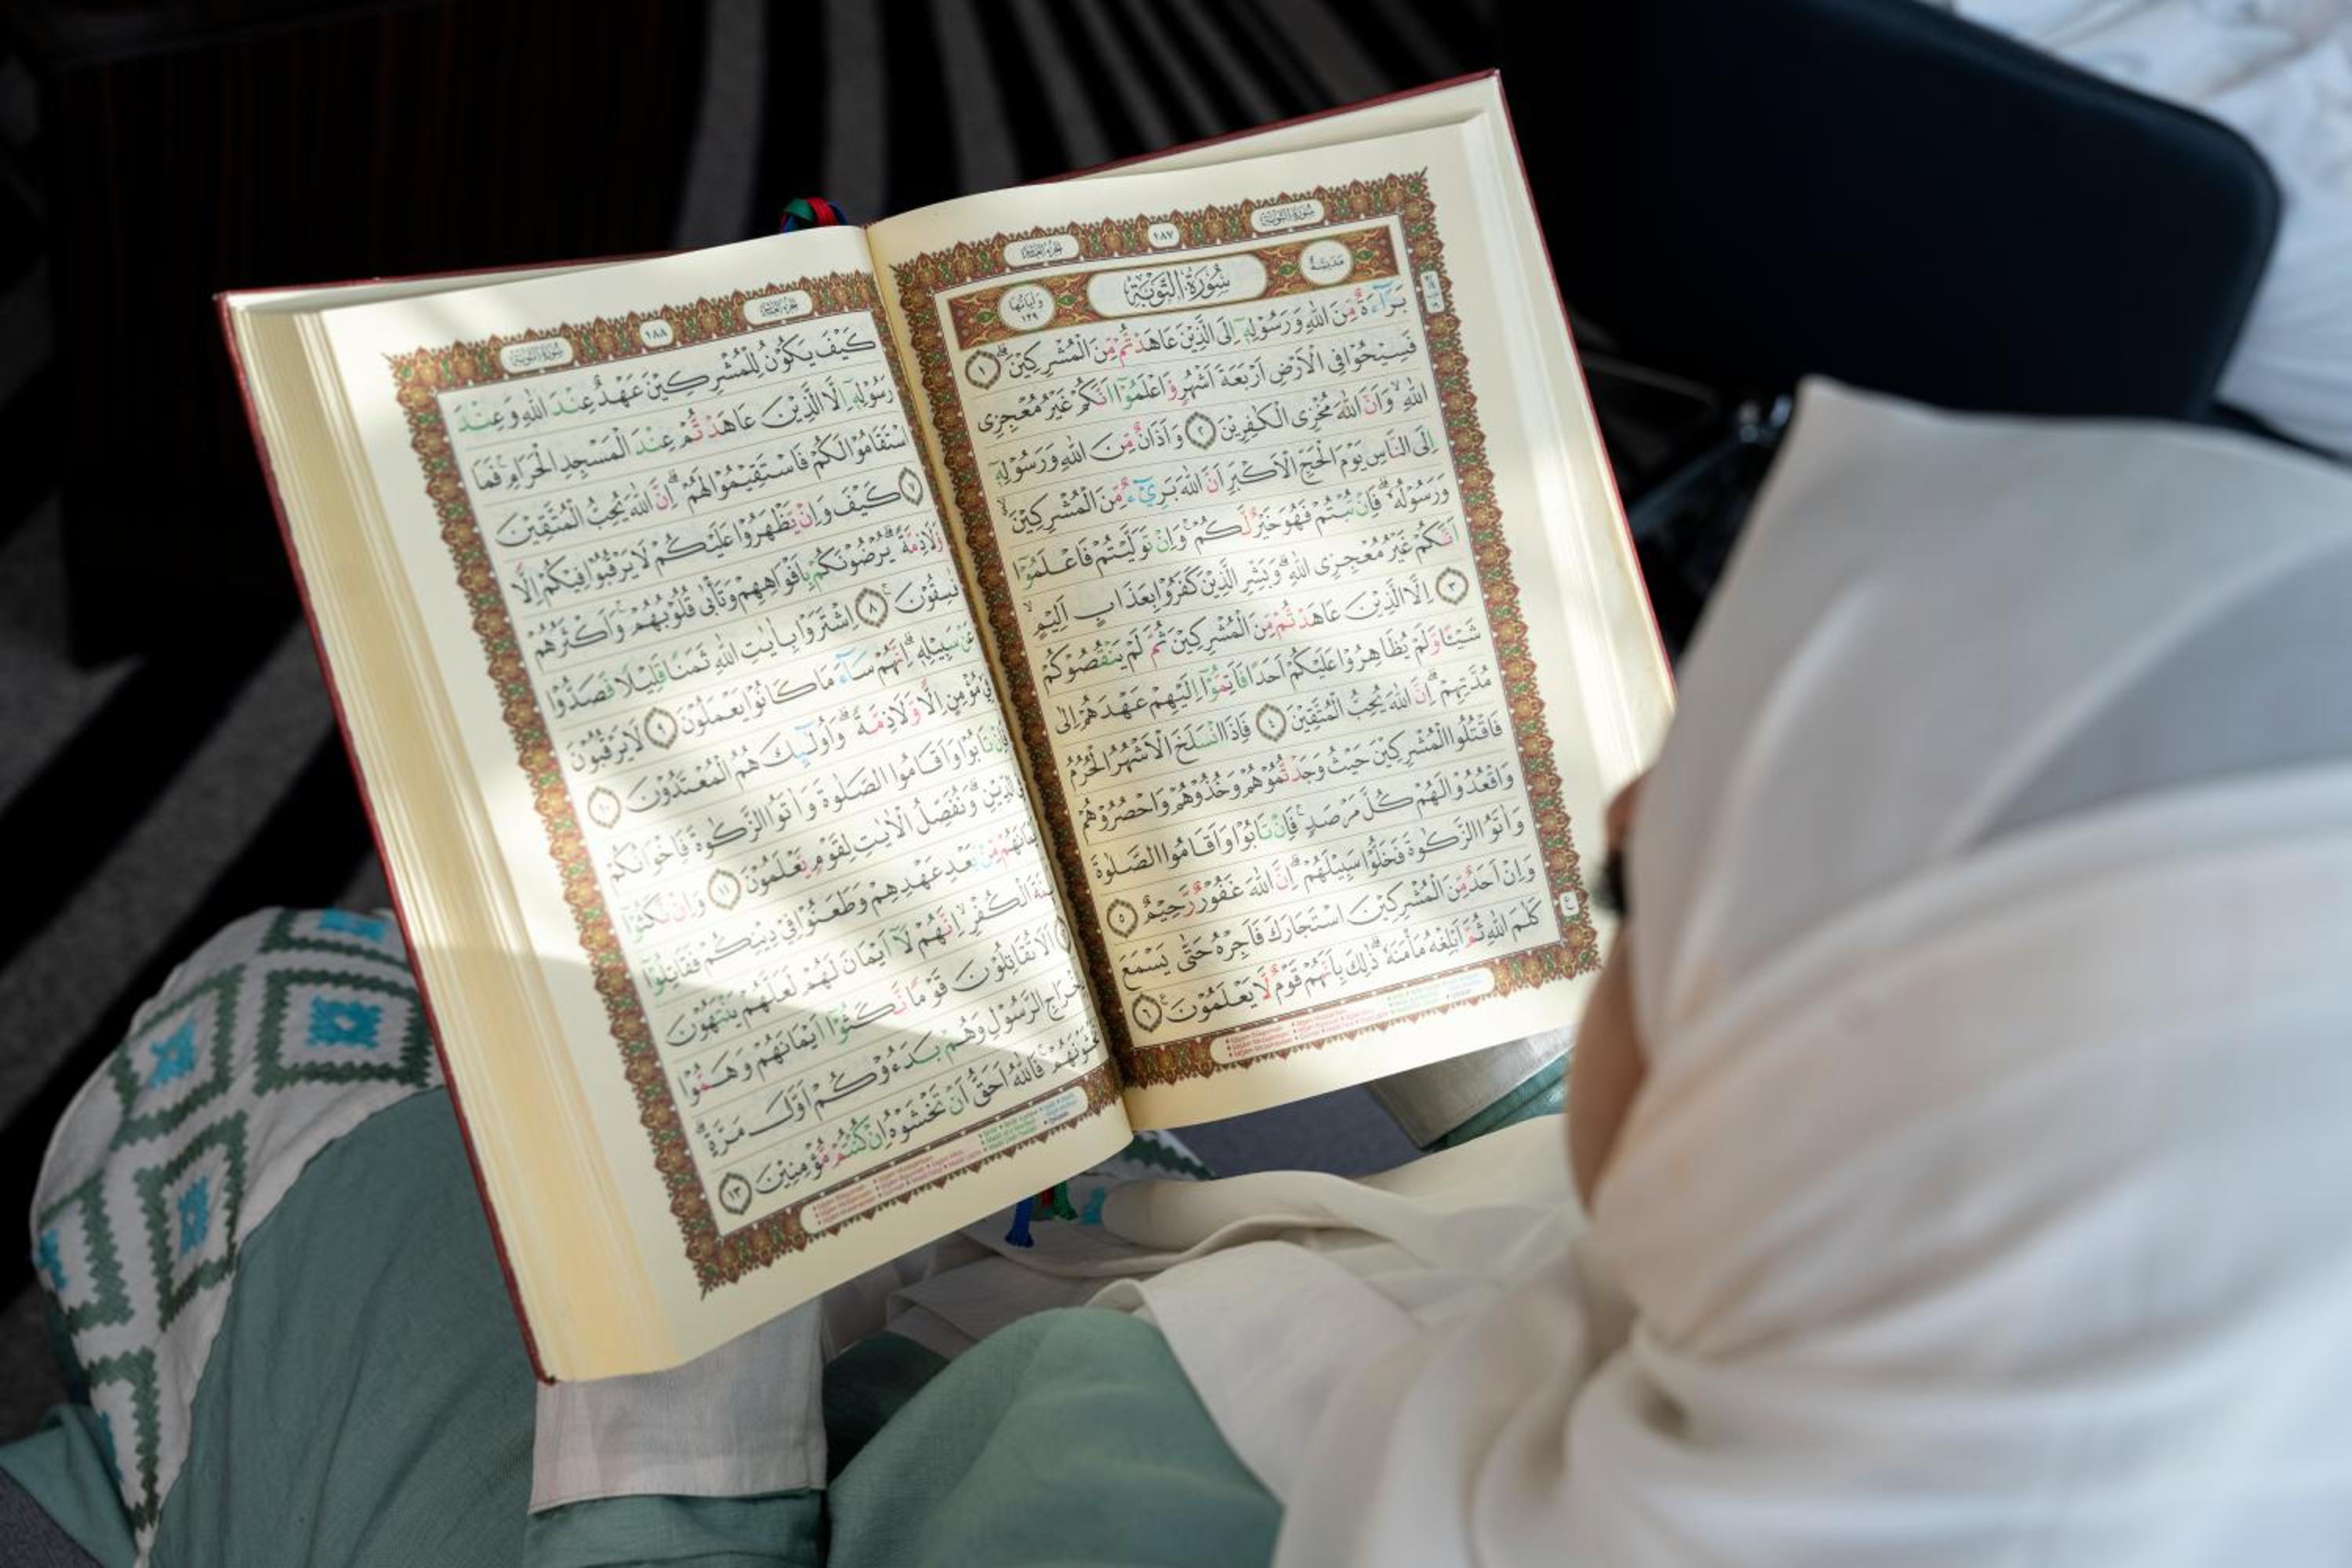 سُوْرَةُ التَّوْبَةِ
١٨٧
سُوْرَةُ التَّوْبَةِ
مَدَنِيَّةٌ
وَاٰيَاتُهَا ١٢٩
بَرَاۤءَةٌ مِّنَ اللّٰهِ وَرَسُوْلِهٖٓ اِلَى الَّذِيْنَ عَاهَدْتُّمْ مِّنَ الْمُشْرِكِيْنَۗ ١
فَسِيْحُوْا فِى الْاَرْضِ اَرْبَعَةَ اَشْهُرٍ وَّاعْلَمُوْٓا اَنَّكُمْ غَيْرُ مُعْجِزِى
اللّٰهِ ۙوَاَنَّ اللّٰهَ مُخْزِى الْكٰفِرِيْنَ ٢ وَاَذَانٌ مِّنَ اللّٰهِ وَرَسُوْلِهٖٓ
اِلَى النَّاسِ يَوْمَ الْحَجِّ الْاَكْبَرِ اَنَّ اللّٰهَ بَرِيْۤءٌ مِّنَ الْمُشْرِكِيْنَ ۙ
وَرَسُوْلُهٗ ۗ فَاِنْ تُبْتُمْ فَهُوَ خَيْرٌ لَّكُمْۚ وَاِنْ تَوَلَّيْتُمْ فَاعْلَمُوْٓا
اَنَّكُمْ غَيْرُ مُعْجِزِى اللّٰهِ ۗوَبَشِّرِ الَّذِيْنَ كَفَرُوْا بِعَذَابٍ اَلِيْمٍۙ
٣ اِلَّا الَّذِيْنَ عَاهَدْتُّمْ مِّنَ الْمُشْرِكِيْنَ ثُمَّ لَمْ يَنْقُصُوْكُمْ
شَيْـًٔا وَّلَمْ يُظَاهِرُوْا عَلَيْكُمْ اَحَدًا فَاَتِمُّوْٓا اِلَيْهِمْ عَهْدَهُمْ اِلٰى
مُدَّتِهِمْۗ اِنَّ اللّٰهَ يُحِبُّ الْمُتَّقِيْنَ ٤ فَاِذَا انْسَلَخَ الْاَشْهُرُ الْحُرُمُ
فَاقْتُلُوا الْمُشْرِكِيْنَ حَيْثُ وَجَدْتُّمُوْهُمْ وَخُذُوْهُمْ وَاحْصُرُوْهُمْ
وَاقْعُدُوْا لَهُمْ كُلَّ مَرْصَدٍۚ فَاِنْ تَابُوْا وَاَقَامُوا الصَّلٰوةَ
وَاٰتَوُا الزَّكٰوةَ فَخَلُّوْا سَبِيْلَهُمْۗ اِنَّ اللّٰهَ غَفُوْرٌ رَّحِيْمٌ ٥
وَاِنْ اَحَدٌ مِّنَ الْمُشْرِكِيْنَ اسْتَجَارَكَ فَاَجِرْهُ حَتّٰى يَسْمَعَ
كَلٰمَ اللّٰهِ ثُمَّ اَبْلِغْهُ مَأْمَنَهٗ ۗذٰلِكَ بِاَنَّهُمْ قَوْمٌ لَّا يَعْلَمُوْنَ ࣖ ٦
١٨٨
سُوْرَةُ التَّوْبَةِ
كَيْفَ يَكُوْنُ لِلْمُشْرِكِيْنَ عَهْدٌ عِنْدَ اللّٰهِ وَعِنْدَ
رَسُوْلِهٖٓ اِلَّا الَّذِيْنَ عَاهَدْتُّمْ عِنْدَ الْمَسْجِدِ الْحَرَامِۚ فَمَا
اسْتَقَامُوْا لَكُمْ فَاسْتَقِيْمُوْا لَهُمْ ۗاِنَّ اللّٰهَ يُحِبُّ الْمُتَّقِيْنَ
٧ كَيْفَ وَاِنْ يَّظْهَرُوْا عَلَيْكُمْ لَا يَرْقُبُوْا فِيْكُمْ اِلًّا
وَّلَا ذِمَّةً ۗيُرْضُوْنَكُمْ بِاَفْوَاهِهِمْ وَتَأْبٰى قُلُوْبُهُمْۚ وَاَكْثَرُهُمْ
فٰسِقُوْنَۚ ٨ اِشْتَرَوْا بِاٰيٰتِ اللّٰهِ ثَمَنًا قَلِيْلًا فَصَدُّوْا
عَنْ سَبِيْلِهٖۗ اِنَّهُمْ سَاۤءَ مَا كَانُوْا يَعْمَلُوْنَ ٩ لَا يَرْقُبُوْنَ
فِيْ مُؤْمِنٍ اِلًّا وَّلَا ذِمَّةً ۗوَاُولٰۤىِٕكَ هُمُ الْمُعْتَدُوْنَ ١٠
فَاِنْ تَابُوْا وَاَقَامُوا الصَّلٰوةَ وَاٰتَوُا الزَّكٰوةَ فَاِخْوَانُكُمْ
فِى الدِّيْنِ ۗوَنُفَصِّلُ الْاٰيٰتِ لِقَوْمٍ يَّعْلَمُوْنَ ١١ وَاِنْ نَّكَثُوْٓا
اَيْمَانَهُمْ مِّنْۢ بَعْدِ عَهْدِهِمْ وَطَعَنُوْا فِيْ دِيْنِكُمْ فَقَاتِلُوْٓا
اَىِٕمَّةَ الْكُفْرِۙ اِنَّهُمْ لَآ اَيْمَانَ لَهُمْ لَعَلَّهُمْ يَنْتَهُوْنَ
اَلَا تُقَاتِلُوْنَ قَوْمًا نَّكَثُوْٓا اَيْمَانَهُمْ وَهَمُّوْا
بِاِخْرَاجِ الرَّسُوْلِ وَهُمْ بَدَءُوْكُمْ اَوَّلَ مَرَّةٍۗ
اَتَخْشَوْنَهُمْ ۚفَاللّٰهُ اَحَقُّ اَنْ تَخْشَوْهُ اِنْ كُنْتُمْ مُّؤْمِنِيْنَ ١٣